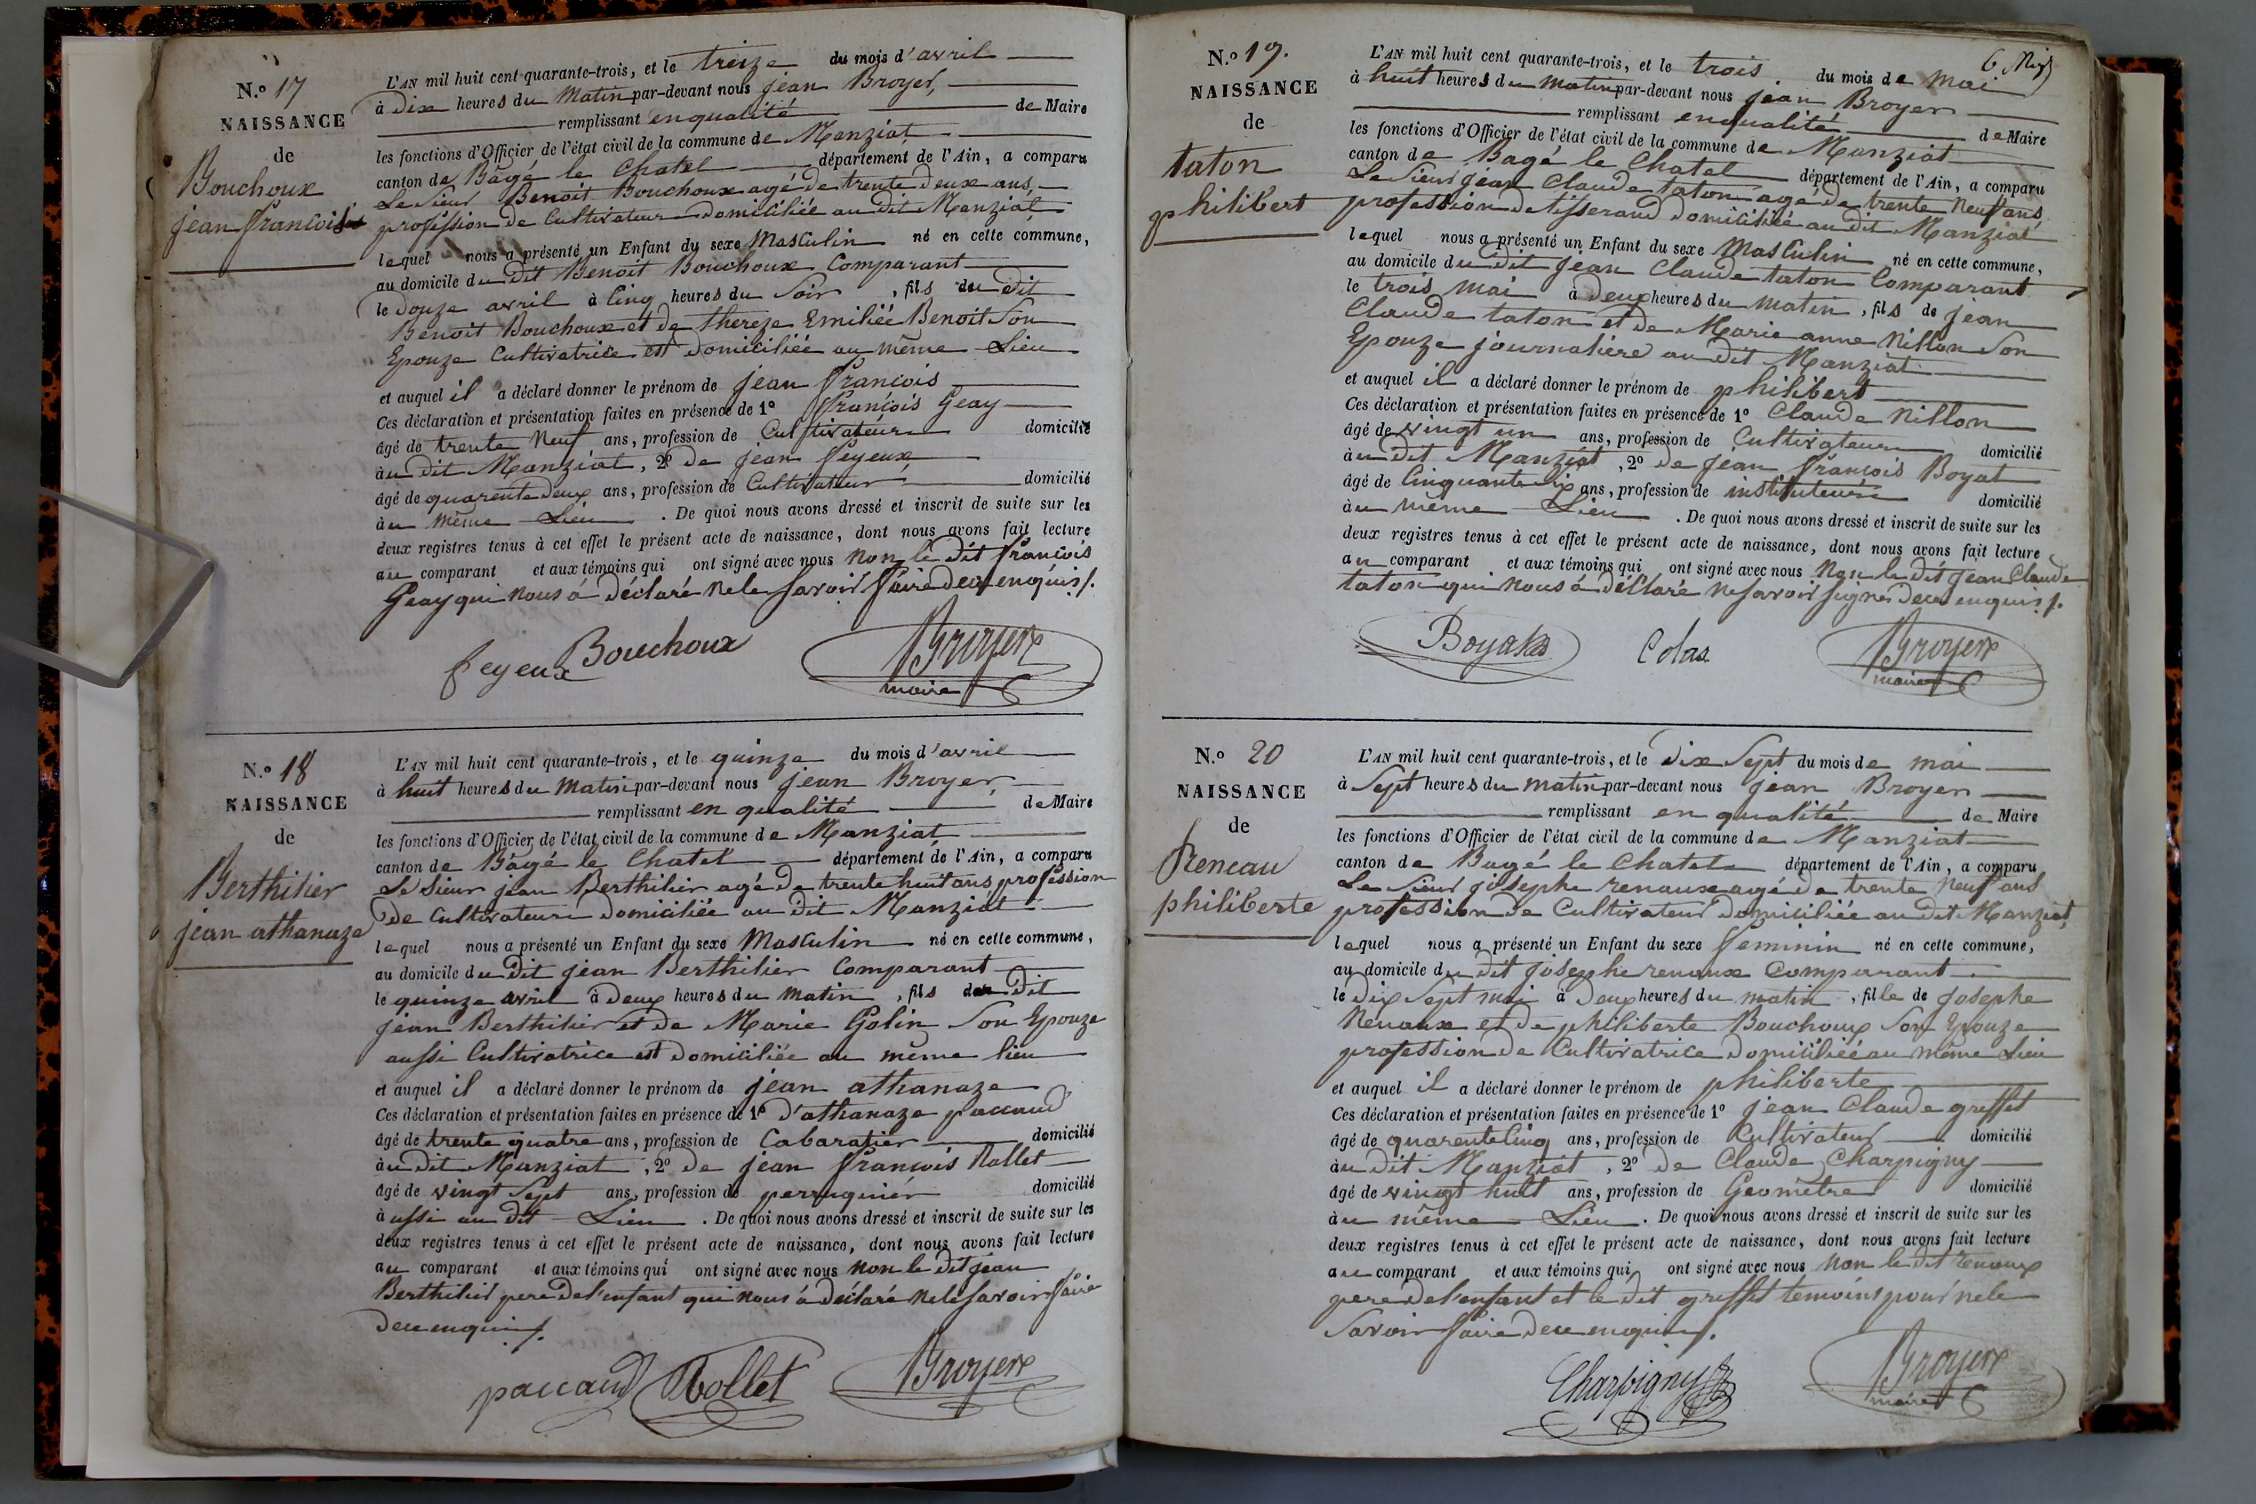 N.º 17
NAISSANCE
de
Bouchoux
jean françois
L'AN mil huit cent quarante-trois, et le treize du mois d'avril
à Dix heures du Matin par-devant nous jean Broyer,
remplissant en qualité de Maire
les fonctions d'Officier de l'état civil de la commune de Manziat
canton de Bâgé le Chatel département de l'Ain, a comparu
Le Sieur Benoit Bouchoux agé de trente deux ans,
profession de Cultivateur domiciliée au dit Manziat
lequel nous a présenté un Enfant du sexe Masculin né en cette commune,
au domicile du dit Benoit Bouchoux Comparant
le Douze avril à Cinq heures du Soir, fils du dit
Benoit Bouchoux et de thereze Emiliée Benoit Son
Epouze Cultivatrice est domiciliée au même Lieu
et auquel il a déclaré donner le prénom de jean françois
Ces déclaration et présentation faites en présence de 1º françois Geay
âgé de trente Neuf ans, profession de Cultivateur domicilié
àu dit Manziat, 2º de jean feyeux
âgé de quarente Deux ans, profession de Cultivateur, domicilié
àu même Lieu. De quoi nous avons dressé et inscrit de suite sur les
deux registres tenus à cet effet le présent acte de naissance, dont nous avons fait lecture
au comparant et aux témoins qui ont signé avec nous Non le dit françois
Geay qui Nous à déclaré Nele Savoir faire dece enquis /.
feyeux Bouchoux Broyer
maire
N.º 18
NAISSANCE
de
Berthilier
jean athanaze
L'AN mil huit cent quarante-trois, et le quinze du mois d'avril
à huit heures du Matin par-devant nous jean Broyer,
remplissant en qualité de Maire
les fonctions d'Officier de l'état civil de la commune de Manziat
canton de Bâgé le Chatel département de l'Ain, a comparu
Le Sieur jean Berthilier agé de trente huit ans profession
de Cultivateur domiciliée au dit Manziat
lequel nous a présenté un Enfant du sexe Masculin né en cette commune,
au domicile du dit jean Berthilier Comparant
le quinze avril à Deux heures du Matin, fils du dit
jean Berthilier et de Marie Golin Son Epouze
aussi Cultivatrice est domiciliée au même lieu
et auquel il a déclaré donner le prénom de jean athanaze
Ces déclaration et présentation faites en présence de 1º d'athanaze paccaud
âgé de trente quatre ans, profession de Cabaratier domicilié
àu dit Manziat, 2º de jean françois Rollet
âgé de vingt Sept ans, profession de perruquiér domicilié
àussi au dit Lieu. De quoi nous avons dressé et inscrit de suite sur les
deux registres tenus à cet effet le présent acte de naissance, dont nous avons fait lecture
au comparant et aux témoins qui ont signé avec nous Non le dit jean
Berthiliér pere de l'enfant qui nous à déclaré Nele Savoir faire
dece enquis /.
paccaud Rollet Broyer
6
N.º 19.
NAISSANCE
de
taton
philibert
L'AN mil huit cent quarante-trois, et le trois du mois de Mai
à huit heures du matin par-devant nous jean Broyer
remplissant en qualité de Maire
les fonctions d'Officier de l'état civil de la commune de Manziat
canton de Bagé le Chatel département de l'Ain, a comparu
Le Sieur jean Claude taton agé de trente Neuf ans
profession de tisserand domiciliée au dit Manziat
lequel nous a présenté un Enfant du sexe Masculin né en cette commune,
au domicile du dit jean Claude taton Comparant
le trois mai à deux heures du matin, fils de jean
Claude taton et de Marie anne Nillon Son
Epouze journaliere au dit Manziat
et auquel il a déclaré donner le prénom de philibert
Ces déclaration et présentation faites en présence de 1º Claude Nillon
âgé de vingt un ans, profession de Cultivateur domicilié
àu dit Manziat, 2º de jean françois Boyat
âgé de Cinquante six ans, profession de instituteur domicilié
àu même Lieu. De quoi nous avons dressé et inscrit de suite sur les
deux registres tenus à cet effet le présent acte de naissance, dont nous avons fait lecture
au comparant et aux témoins qui ont signé avec nous Non le dit jean Claude
taton qui nous à déclaré Ne savoir signer dece enquis /.
Boyat Colas Broyer
maire
N.º 20
NAISSANCE
de
Reneau
philiberte
L'AN mil huit cent quarante-trois, et le Dix Sept du mois de mai
à Sept heures du matin par-devant nous jean Broyer
remplissant en qualité de Maire
les fonctions d'Officier de l'état civil de la commune de Manziat
canton de Bagé le Chatel département de l'Ain, a comparu
Le Sieur josephe renaux agé de trente Neuf ans
profession de Cultivateur domiciliée au dit Manziat,
lequel nous a présenté un Enfant du sexe feminin né en cette commune,
au domicile du dit josephe renaux Comparant
le dix Sept mai à Deux heures du matin, fille de josephe
Renaux et de philiberte Bouchoux Son Epouze
profession de Cultivatrice domiciliée au même Lieu
et auquel il a déclaré donner le prénom de philiberte
Ces déclaration et présentation faites en présence de 1º jean Claude griffet
âgé de quarente Cinq ans, profession de Cultivateur domicilié
àu dit Manziat, 2º de Claude Charpigny
âgé de vingt huit ans, profession de Geomètre domicilié
àu même Lieu. De quoi nous avons dressé et inscrit de suite sur les
deux registres tenus à cet effet le présent acte de naissance, dont nous avons fait lecture
au comparant et aux témoins qui ont signé avec nous Non le dit renaux
pere de l'enfant et le dit griffet temoins pour nele
Savoir faire dece enquis /.
Charpigny Broyer
maire